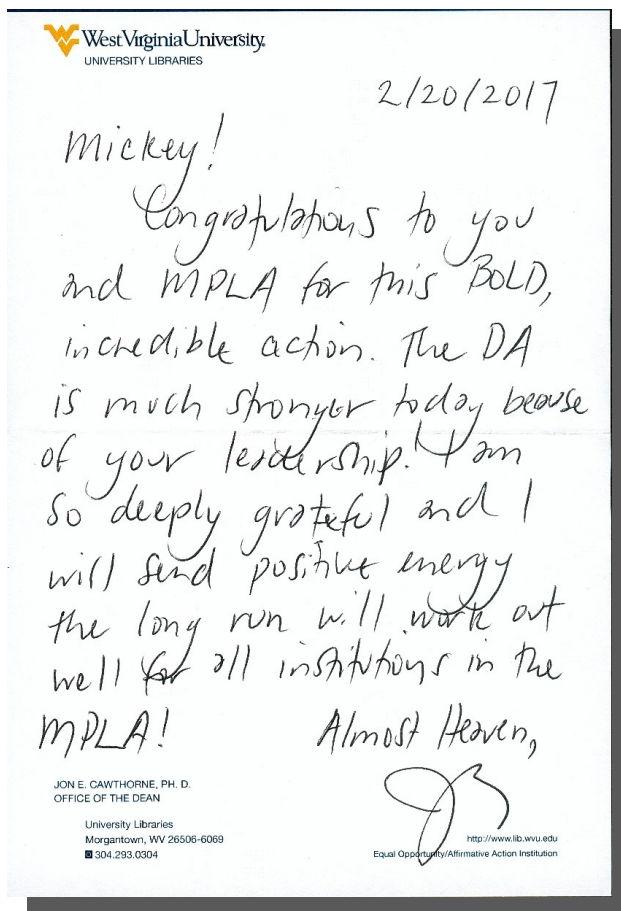 West Virginia University.
UNIVERSITY LIBRARIES
2/20/2017
Mickey!
Congratulations to you
and MPLA for this BOLD,
incredible action. The DA
is much stronger today beause
of your leadership! I am
so deeply grateful and I
will send positive energy
the long run will work out
well for all institutions in the
MPLA!
Almost Heaven,
JON E. CAWTHORNE, PH. D.
OFFICE OF THE DEAN
University Libraries
Morgantown, WV 26506-6069
304.293.0304
http://www.lib.wvu.edu
Equal Opportunity/Affirmative Action Institution